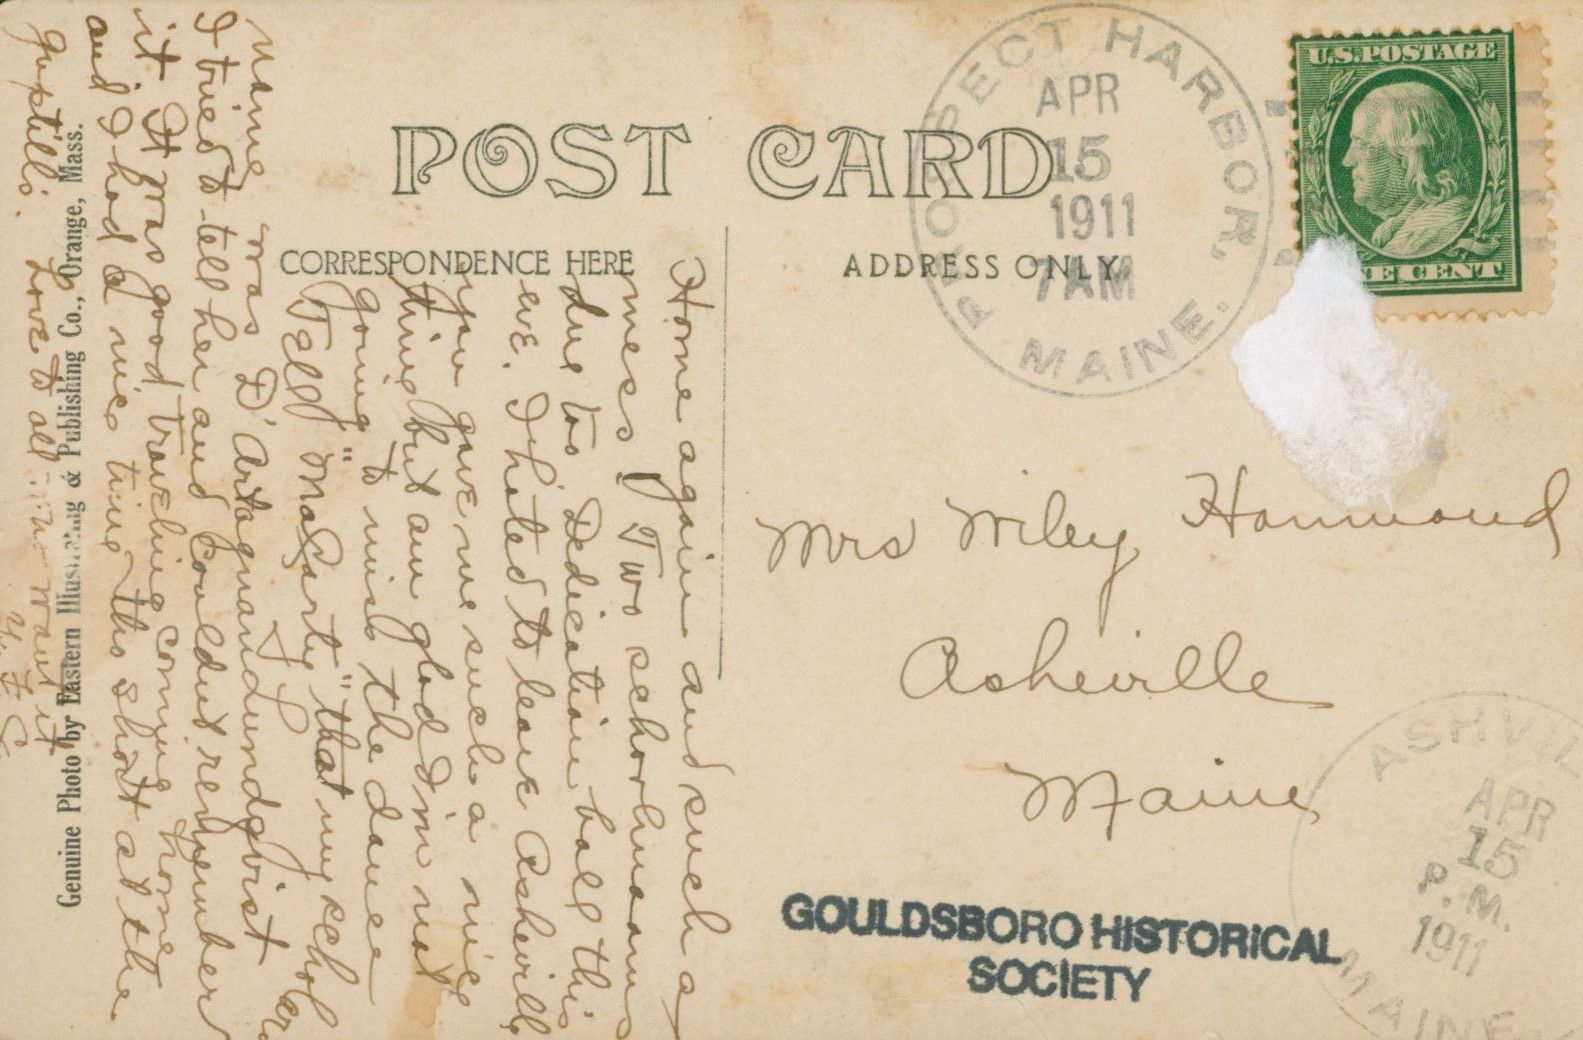 POST CARD
CORRESPONDENCE HERE
ADDRESS ONLY
PROSPECT HARBOR,
MAINE.
APR
15
1911
7 AM
U.S. POSTAGE
ONE CENT
Mrs Wiley Hammond
Asheville
Maine
ASHVIL
MAINE
APR
15
P.M.
1911
GOULDSBORO HISTORICAL
SOCIETY
Home again and such a
mess! Two schoolrooms
due to Dedication ball this
eve. I hated to leave Asheville
you gave me such a nice
time but am glad I'm not
going to miss the dance
Tell "McCarty" that my schol
name was D'Artagnan
I tried to tell her and couldn't remember
it. It was good traveling coming home
and I had a nice time this short at the
Guptill's. Love to all want it
Genuine Photo by Eastern Illustrating & Publishing Co., Orange, Mass.